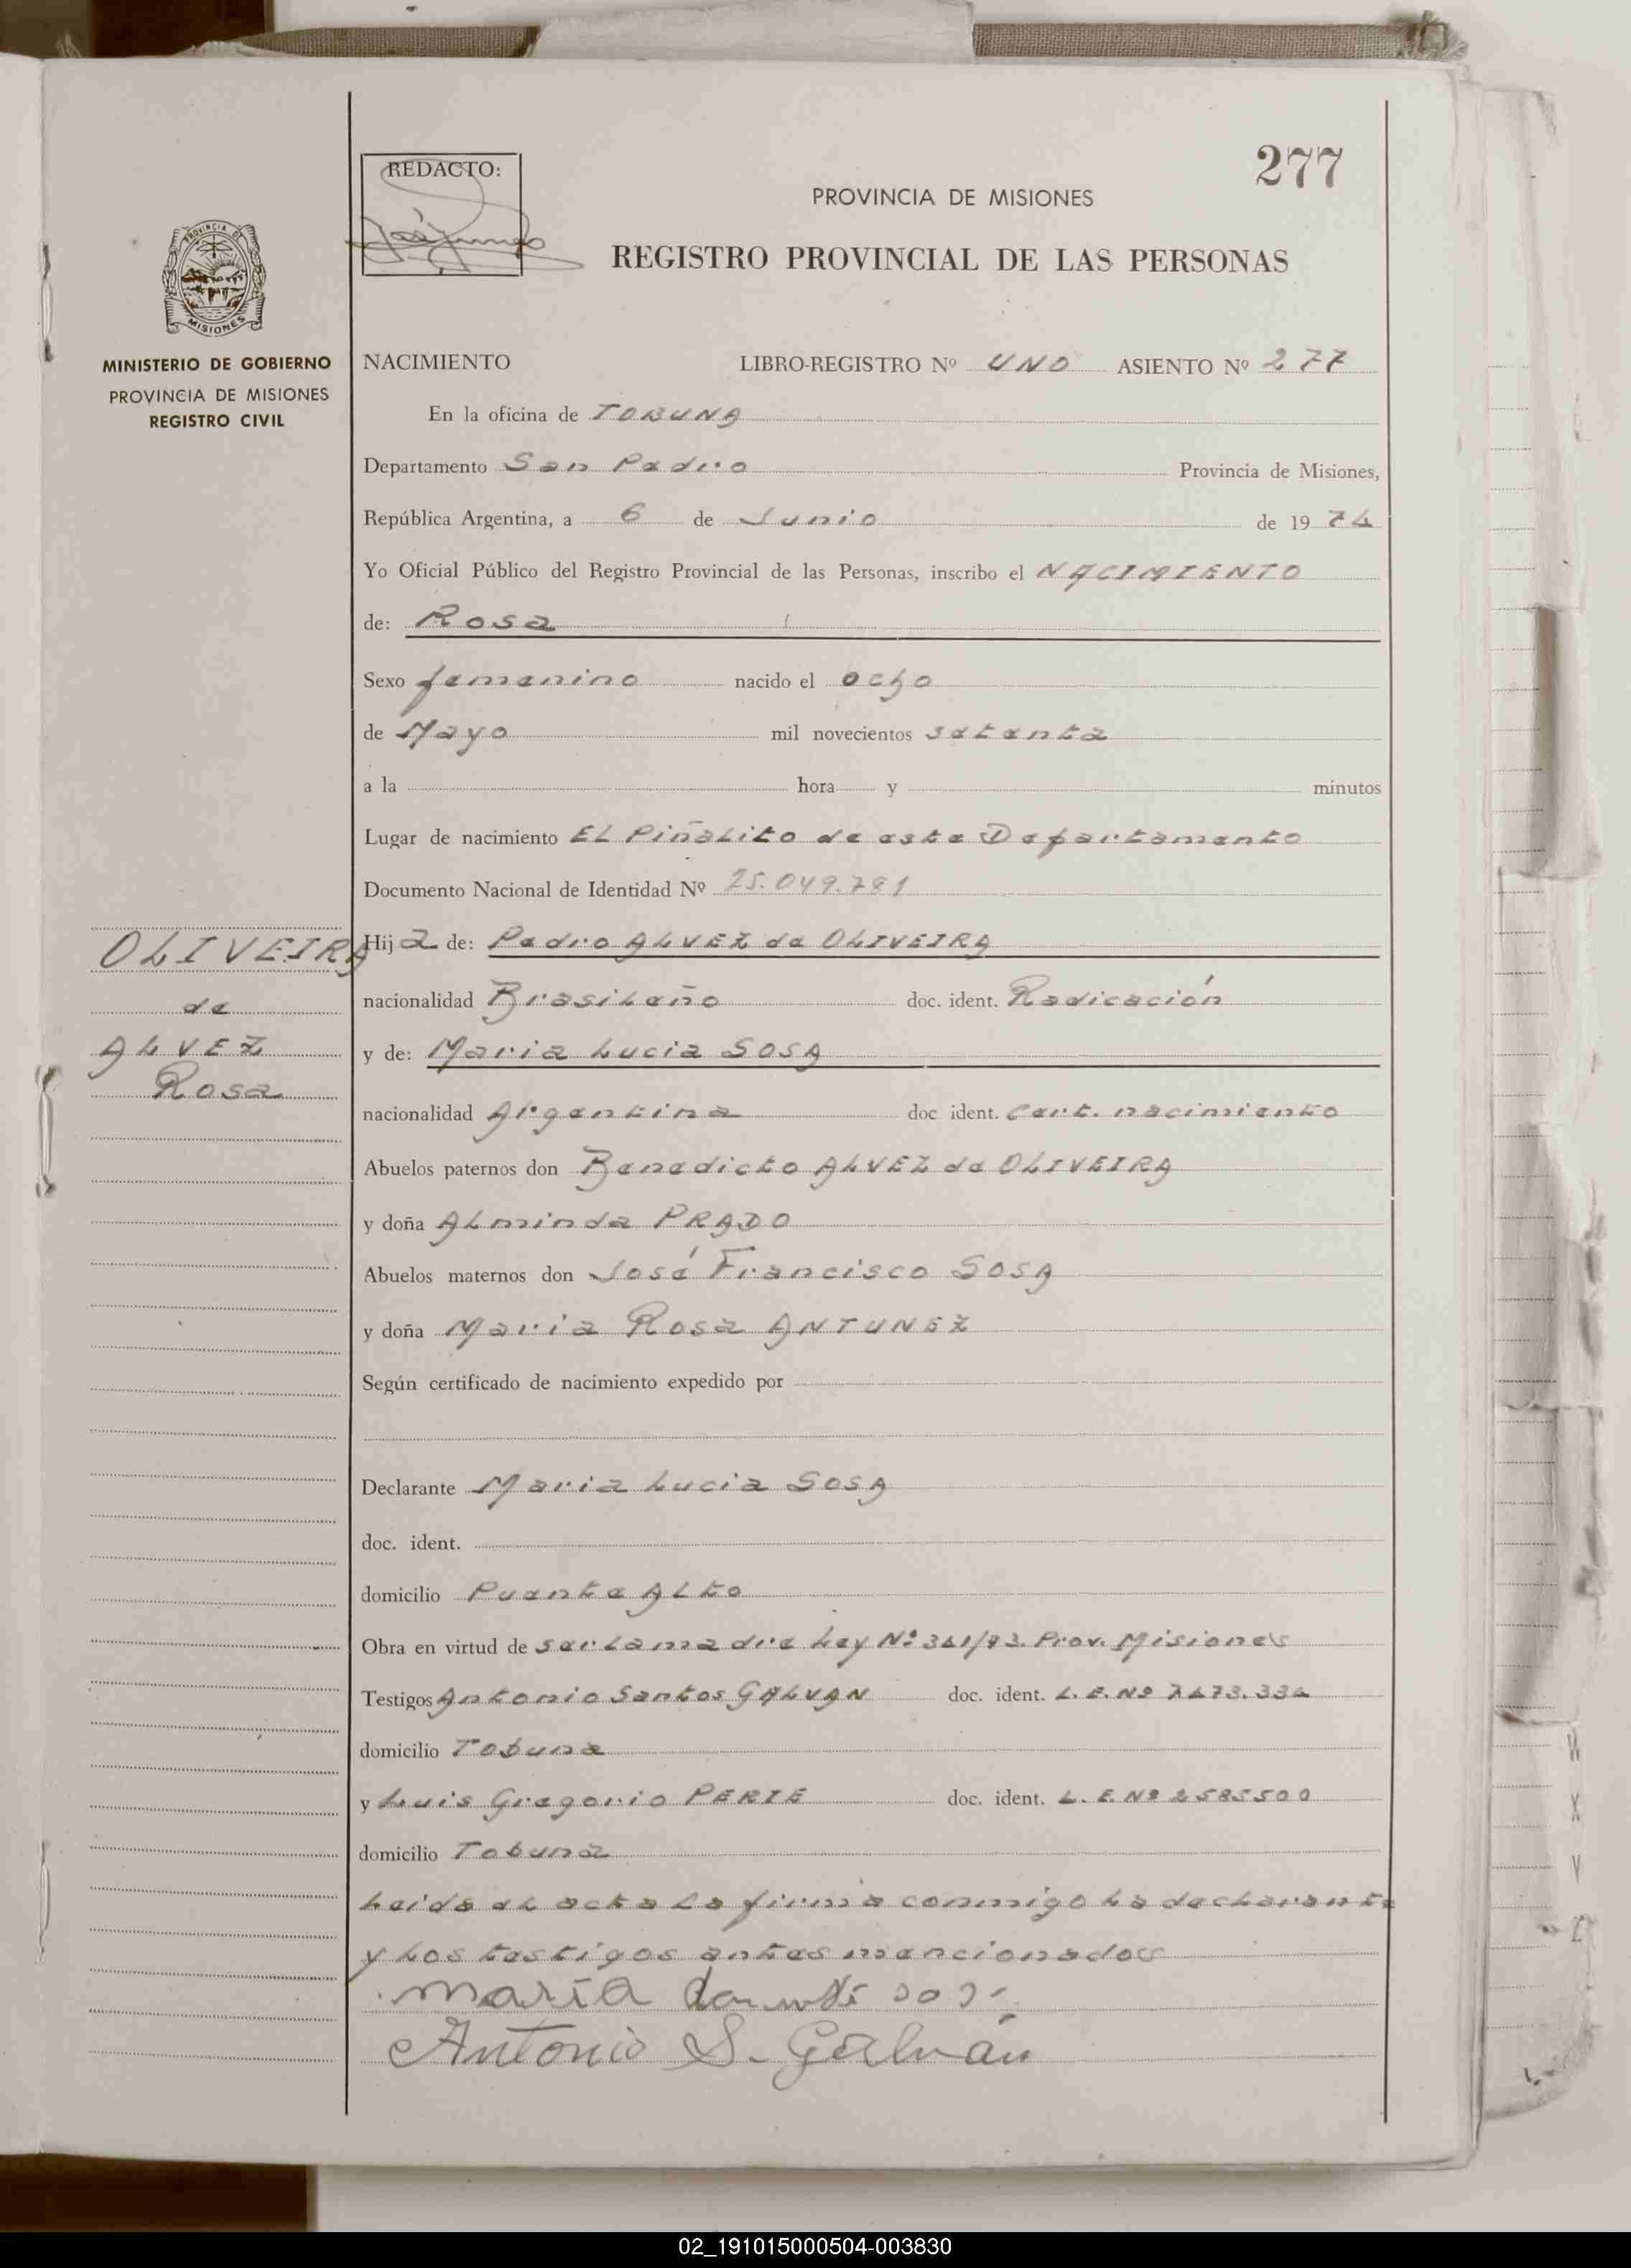 277
REDACTO:
PROVINCIA DE MISIONES
REGISTRO PROVINCIAL DE LAS PERSONAS
PROVINCIA DE
MISIONES
MINISTERIO DE GOBIERNO
PROVINCIA DE MISIONES
REGISTRO CIVIL
NACIMIENTO LIBRO-REGISTRO Nº UNO ASIENTO Nº 277
En la oficina de TOBUNA
Departamento San Pedro Provincia de Misiones,
República Argentina, a 6 de Junio de 1974
Yo Oficial Público del Registro Provincial de las Personas, inscribo el NACIMIENTO
de: Rosa
Sexo femenino nacido el ocho
de Mayo mil novecientos setenta
a la hora y minutos
Lugar de nacimiento EL Piñalito de este Departamento
Documento Nacional de Identidad Nº 25.049.781
OLIVEIRA
de
ALVEZ
Rosa
Hija de: Pedro ALVEZ de OLIVEIRA
nacionalidad Brasileño doc. ident. Radicación
y de: Maria Lucia SOSA
nacionalidad Argentina doc ident. Cert. nacimiento
Abuelos paternos don Benedicto ALVEZ de OLIVEIRA
y doña ALminda PRADO
Abuelos maternos don José Francisco SOSA
y doña Maria Rosa ANTUNEZ
Según certificado de nacimiento expedido por
Declarante Maria Lucia SOSA
doc. ident.
domicilio Puente ALto
Obra en virtud de ser la madre Ley Nº 341/73. Prov. Misiones
Testigos Antonio Santos GALVAN doc. ident. L. E. Nº 7473.334
domicilio Tobuna
y Luis Gregorio PERIE doc. ident. L. E. Nº 2585500
domicilio Tobuna
Leida el acta la firma conmigo la declarante
y los testigos antes mencionados
maría
Antonio S. Galván
W
X
Y
Z
02_191015000504-003830